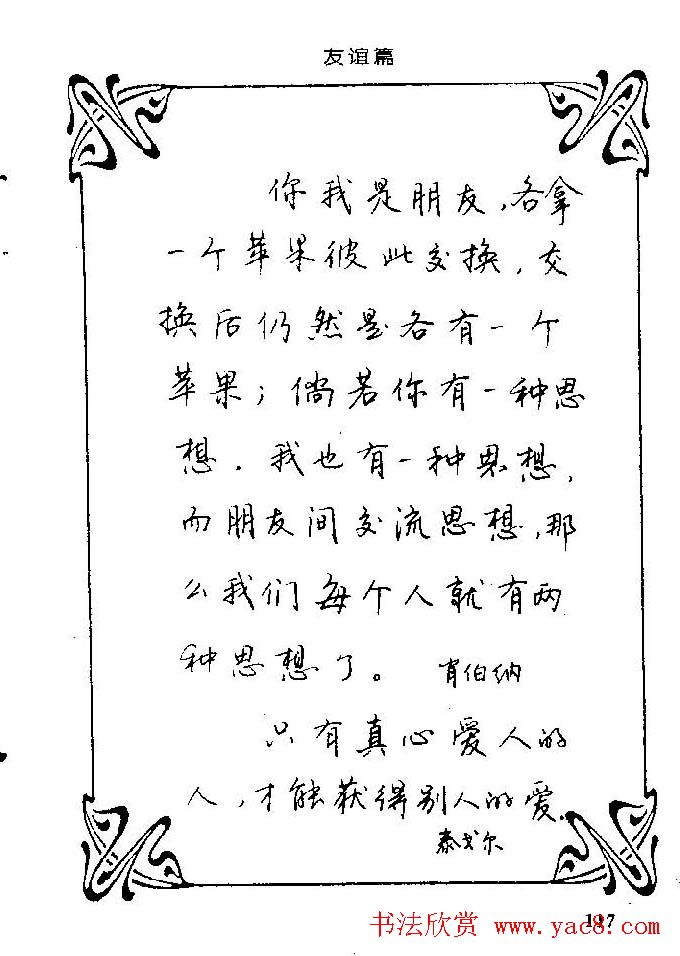 友谊篇
你我是朋友，各拿
一个苹果彼此交换，交
换后仍然是各有一个
苹果；倘若你有一种思
想，我也有一种思想，
而朋友间交流思想，那
么我们每个人就有两
种思想了。 肖伯纳
只有真心爱人的
人，才能获得别人的爱。
泰戈尔
197
书法欣赏 www.yac8.com